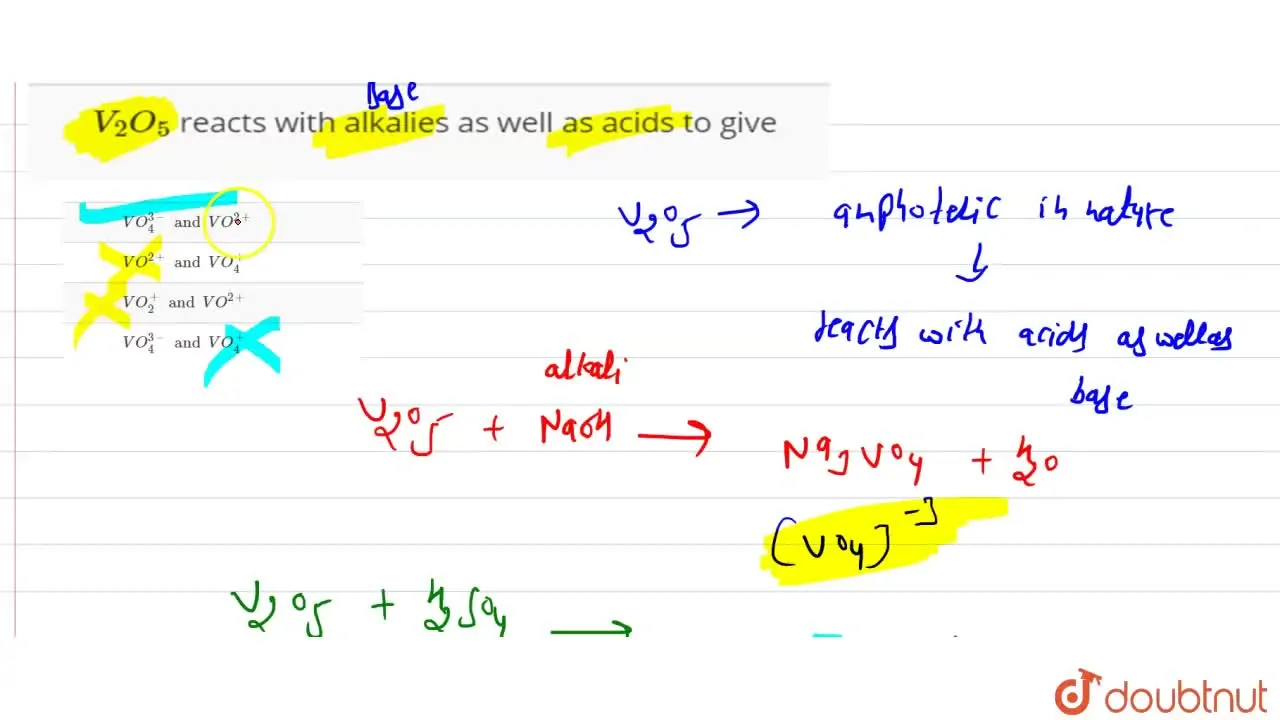 Base
V₂O₅ reacts with alkalies as well as acids to give
VO₄³⁻ and VO²⁺
VO²⁺ and VO₄⁺
VO₂⁺ and VO²⁺
VO₄³⁻ and VO₄⁺
V₂O₅ → amphoteric in nature
↓
reacts with acids as well as
base
alkali
V₂O₅ + NaOH → Na₃VO₄ + H₂O
[VO₄]⁻³
V₂O₅ + H₂SO₄ →
doubtnut